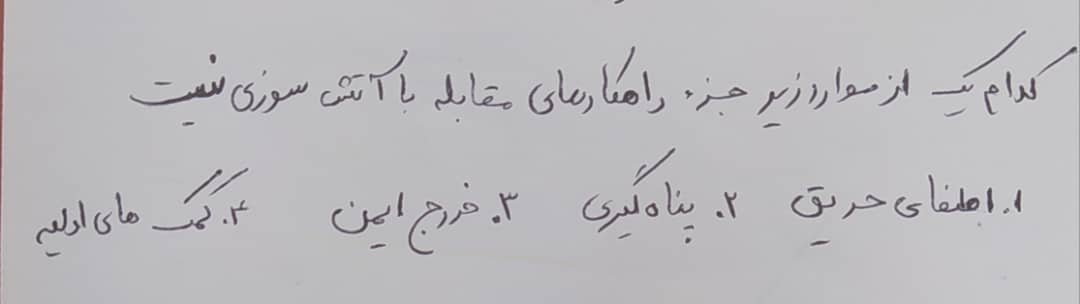 کدام یک از موارد زیر جزء راهکارهای مقابله با آتش سوزی نیست
۱. اطفای حریق ۲. پناه گیری ۳. خروج ایمن ۴. کمک های اولیه